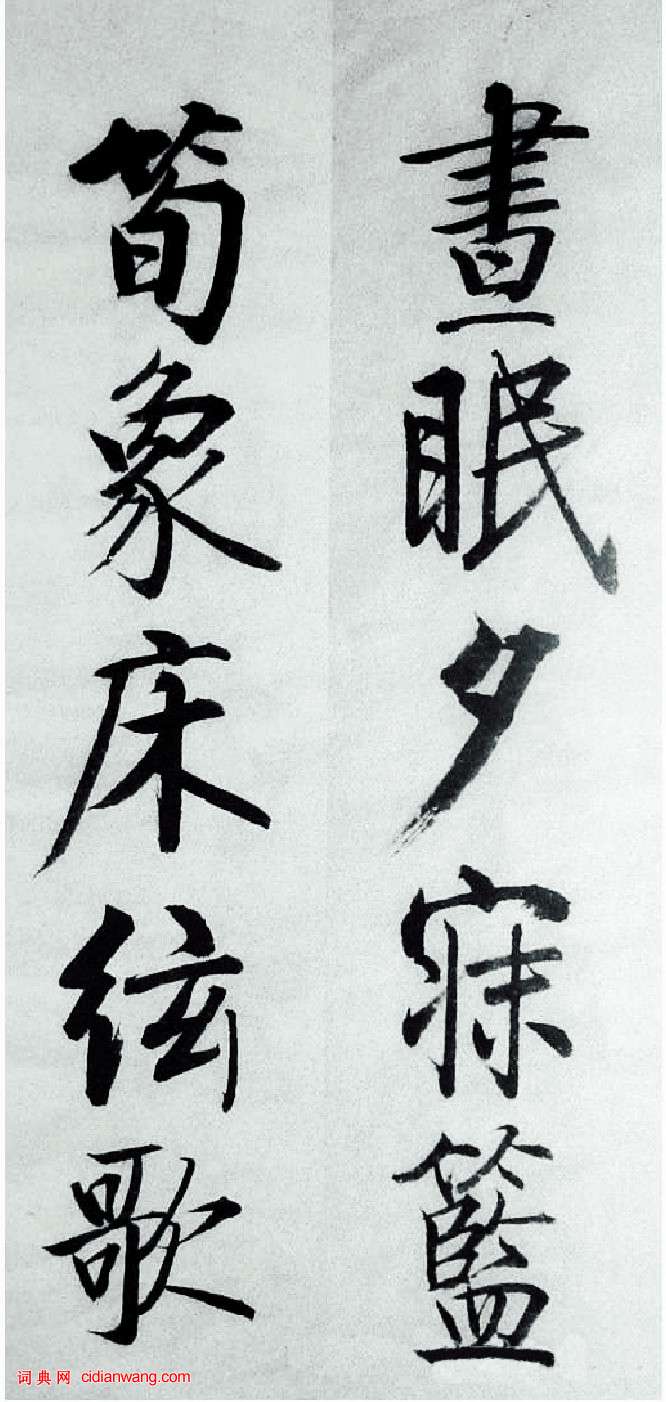 晝眠夕寐籃
筍象床絃歌
词典网 cidianwang.com